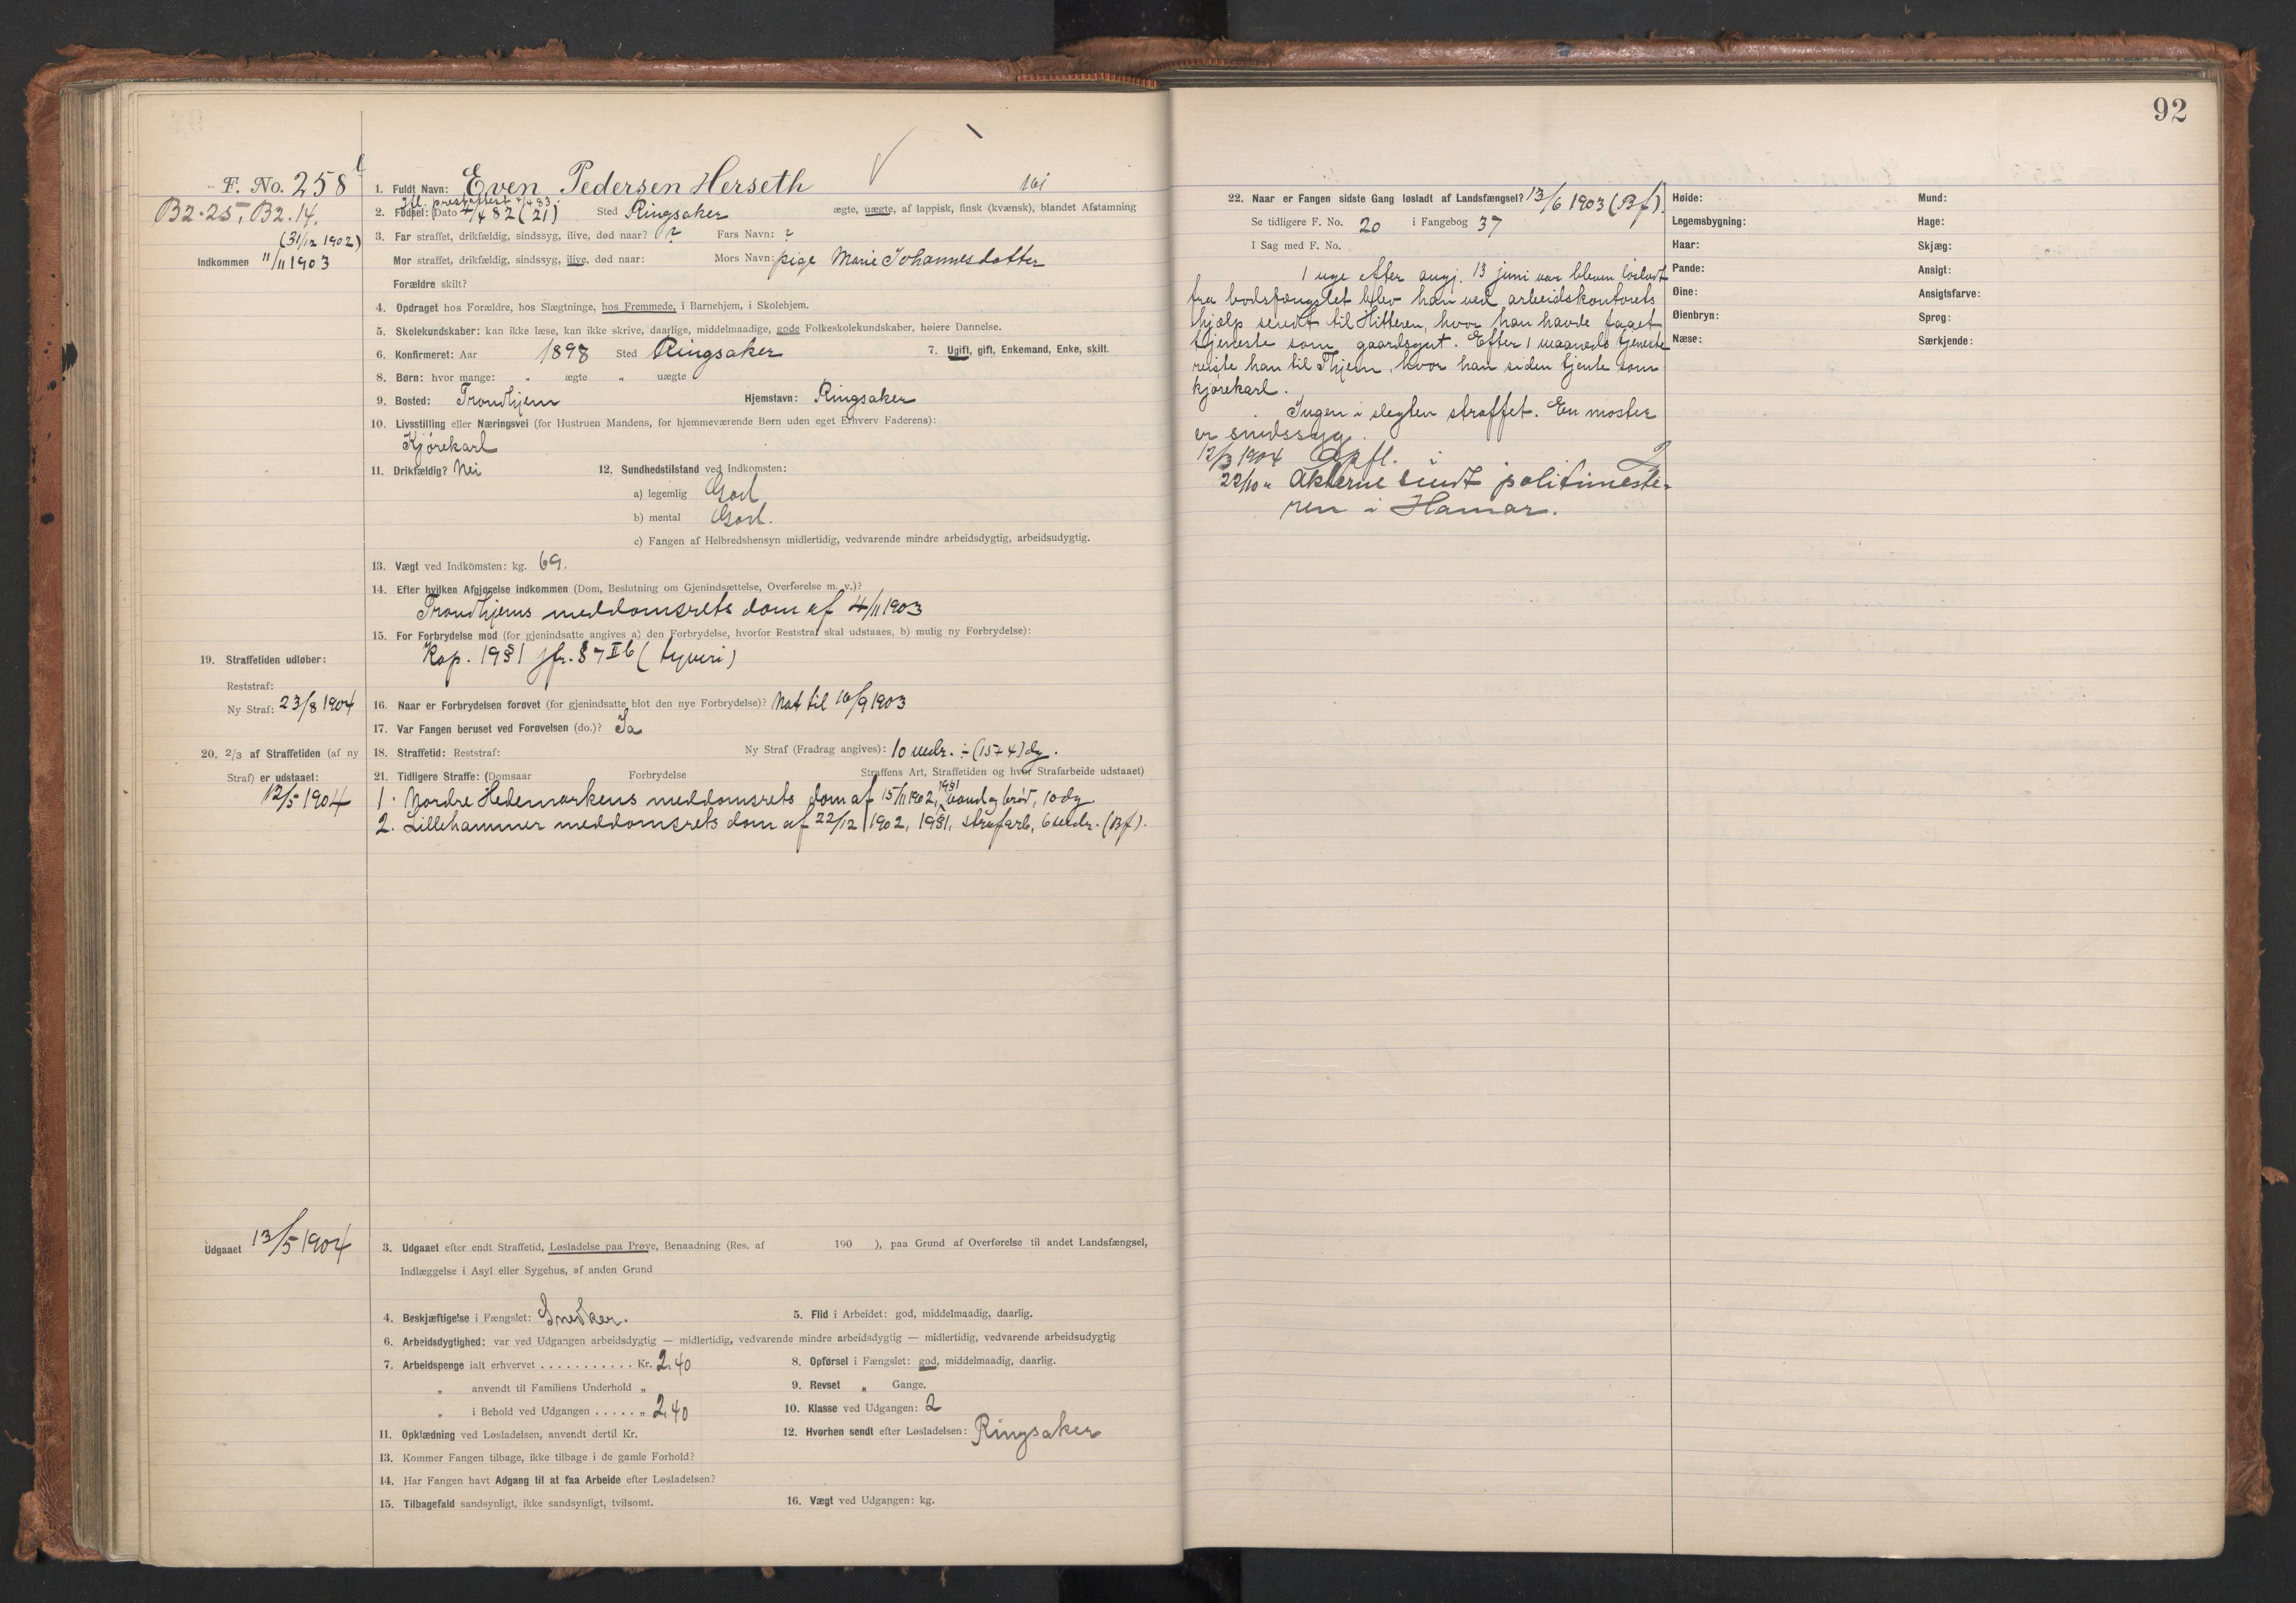 92
F. No. 258
B2.25, B2.14.
(31/12 1902)
Indkommen 11/11 1903
1. Fuldt Navn: Even Pedersen Herseth
161
2. Fødsel: Dato 7/4 82 (21) Sted Ringsaker ægte, uægte, af lappisk, finsk (kvænsk), blandet Afstamning
3. Far straffet, drikfældig, sindssyg, ilive, død naar? ? Fars Navn: ?
Mor straffet, drikfældig, sindssyg, ilive, død naar: Mors Navn: pige Marie Johannesdatter
Forældre skilt?
4. Opdraget hos Forældre, hos Slægtninge, hos Fremmede, i Barnehjem, i Skolehjem.
5. Skolekundskaber: kan ikke læse, kan ikke skrive, daarlige, middelmaadige, gode Folkeskolekundskaber, høiere Dannelse.
6. Konfirmeret: Aar 1898 Sted Ringsaker 7. Ugift, gift, Enkemand, Enke, skilt.
8. Børn: hvor mange: " ægte " uægte
9. Bosted: Trondhjem Hjemstavn: Ringsaker
10. Livsstilling eller Næringsvei (for Hustruen Mandens, for hjemmeværende Børn uden eget Erhverv Faderens):
Kjørekarl
11. Drikfældig? Nei 12. Sundhedstilstand ved Indkomsten:
a) legemlig God
b) mental God.
c) Fangen af Helbredshensyn midlertidig, vedvarende mindre arbeidsdygtig, arbeidsudygtig.
13. Vægt ved Indkomsten: kg. 69.
14. Efter hvilken Afgjørelse indkommen (Dom, Beslutning om Gjenindsættelse, Overførelse m. v.)?
Trondhjems meddomsrets dom af 4/11 1903
15. For Forbrydelse mod (for gjenindsatte angives a) den Forbrydelse, hvorfor Reststraf skal udstaaes, b) mulig ny Forbrydelse):
Kap. 19 § 1 jfr. § 7 II b (tyveri)
19. Straffetiden udløber:
Reststraf:
Ny Straf: 23/8 1904
16. Naar er Forbrydelsen forøvet (for gjenindsatte blot den nye Forbrydelse)? Nat til 16/9 1903
17. Var Fangen beruset ved Forøvelsen (do.)? Ja
20. 2/3 af Straffetiden (af ny
Straf) er udstaaet:
12/5 1904
18. Straffetid: Reststraf: Ny Straf (Fradrag angives): 10 mdr. ÷ (15+4) dg.
21. Tidligere Straffe: (Domsaar Forbrydelse Straffens Art, Straffetiden og hvor Strafarbeide udstaaet)
1. Nordre Hedemarkens meddomsrets dom af 15/11 1902, 19§1 vand og brød, 10 dg.
2. Lillehammer meddomsrets dom af 22/12 1902, 19§1, strafarb, 6 mdr. (Bf).
Udgaaet 13/5 1904
3. Udgaaet efter endt Straffetid, Løsladelse paa Prøve, Benaadning (Res. af 190 ), paa Grund af Overførelse til andet Landsfængsel,
Indlæggelse i Asyl eller Sygehus, af anden Grund
4. Beskjæftigelse i Fængslet: Snedker. 5. Flid i Arbeidet: god, middelmaadig, daarlig.
6. Arbeidsdygtighed: var ved Udgangen arbeidsdygtig — midlertidig, vedvarende mindre arbeidsdygtig — midlertidig, vedvarende arbeidsudygtig
7. Arbeidspenge ialt erhvervet ........... Kr. 2.40 8. Opførsel i Fængslet: god, middelmaadig, daarlig.
" anvendt til Familiens Underhold " 9. Revset " Gange.
" i Behold ved Udgangen ..... " 2.40 10. Klasse ved Udgangen: 2
11. Opklædning ved Løsladelsen, anvendt dertil Kr. 12. Hvorhen sendt efter Løsladelsen: Ringsaker
13. Kommer Fangen tilbage, ikke tilbage i de gamle Forhold?
14. Har Fangen havt Adgang til at faa Arbeide efter Løsladelsen?
15. Tilbagefald sandsynligt, ikke sandsynligt, tvilsomt. 16. Vægt ved Udgangen: kg.
22. Naar er Fangen sidste Gang løsladt af Landsfængsel? 13/6 1903 (Bf).
Se tidligere F. No. 20 i Fangebog 37
I Sag med F. No.
1 uge efter angj. 13 juni var bleven løsladt
fra bodsfængslet blev han ved arbeidskontorets
hjælp sendt til Hitteren, hvor han havde faaet
tjeneste som gaardsgut. Efter 1 maaneds tjeneste
reiste han til Thjem, hvor han siden tjente som
kjørekarl.
Ingen i slegten straffet. En moster
er sindssyg.
12/3 1904 Opfl. i 2
22/10 " Akterne sendt politimeste-
ren i Hamar.
Høide: Mund:
Legemsbygning: Hage:
Haar: Skjæg:
Pande: Ansigt:
Øine: Ansigtsfarve:
Øienbryn: Sprog:
Næse: Særkjende: